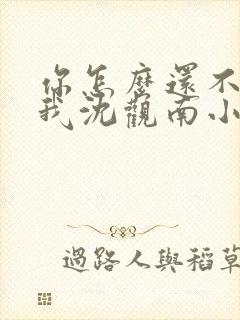 你怎麼還不
我沈觀南小
過路人與稻草